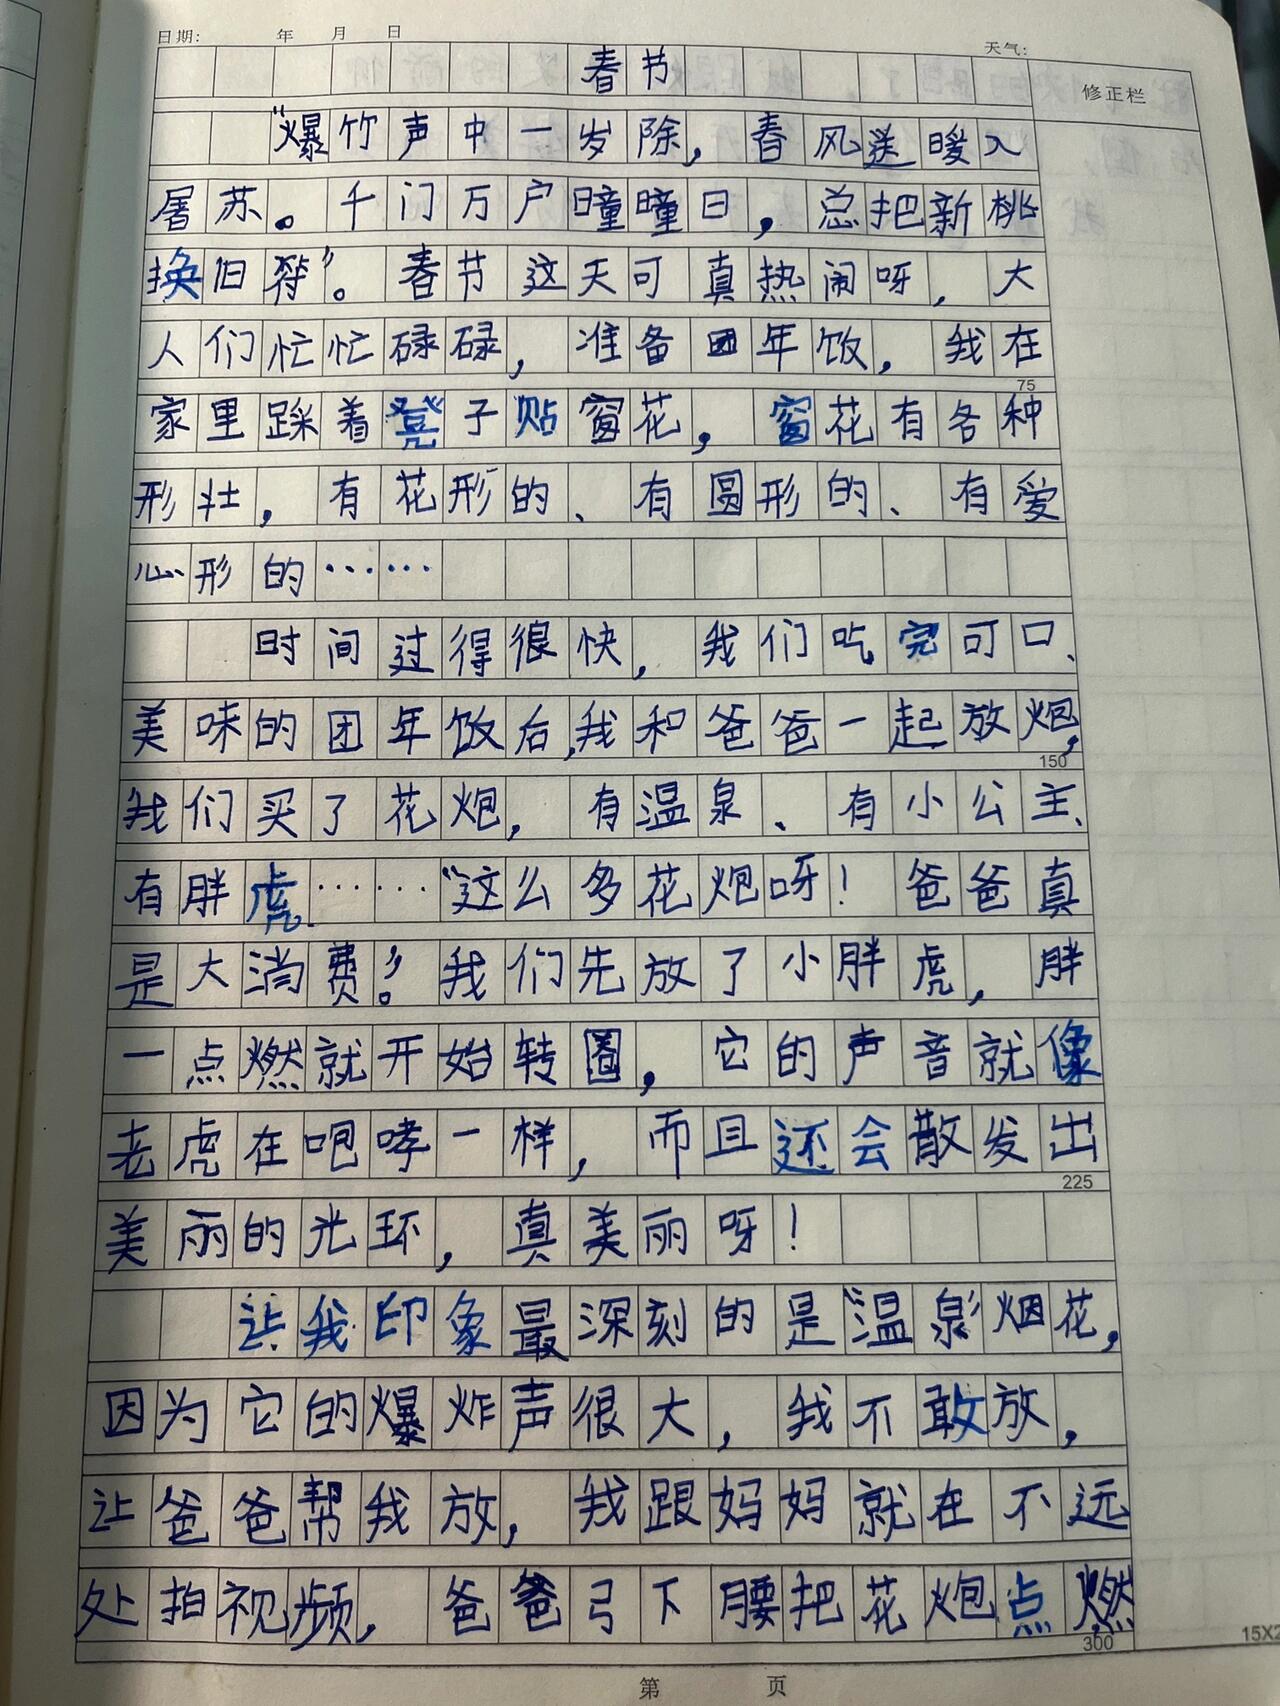 日期: 年 月 日 天气:
春节
修正栏
“爆竹声中一岁除，春风送暖入
屠苏。千门万户瞳瞳日，总把新桃
换旧符”。春节这天可真热闹呀，大
人们忙忙碌碌，准备团年饭，我在
75
家里踩着凳子贴窗花，窗花有各种
形壮，有花形的、有圆形的、有爱
心形的……
时间过得很快，我们吃完可口、
美味的团年饭后，我和爸爸一起放炮，
150
我们买了花炮，有温泉、有小公主、
有胖虎……“这么多花炮呀！爸爸真
是大消费！”我们先放了小胖虎，胖
一点燃就开始转圈，它的声音就像
老虎在咆哮一样，而且还会散发出
225
美丽的光环，真美丽呀！
让我印象最深刻的是“温泉”烟花，
因为它的爆炸声很大，我不敢放，
让爸爸帮我放，我跟妈妈就在不远
处拍视频，爸爸弓下腰把花炮点燃
300
15X2
第 页